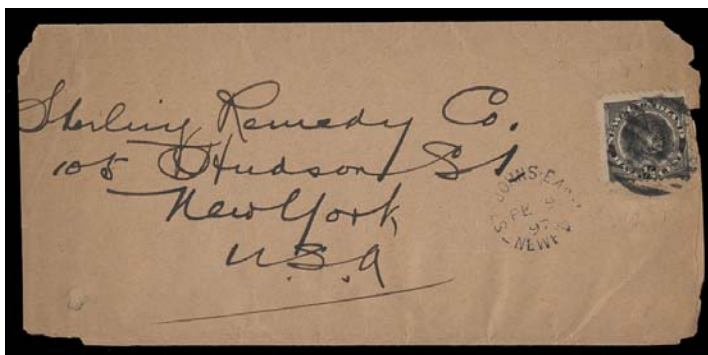 Sterling Remedy Co.
105 Hudson St
New York
U.S.A
ST. JOHNS-EAST
FE
97
NEWF'D